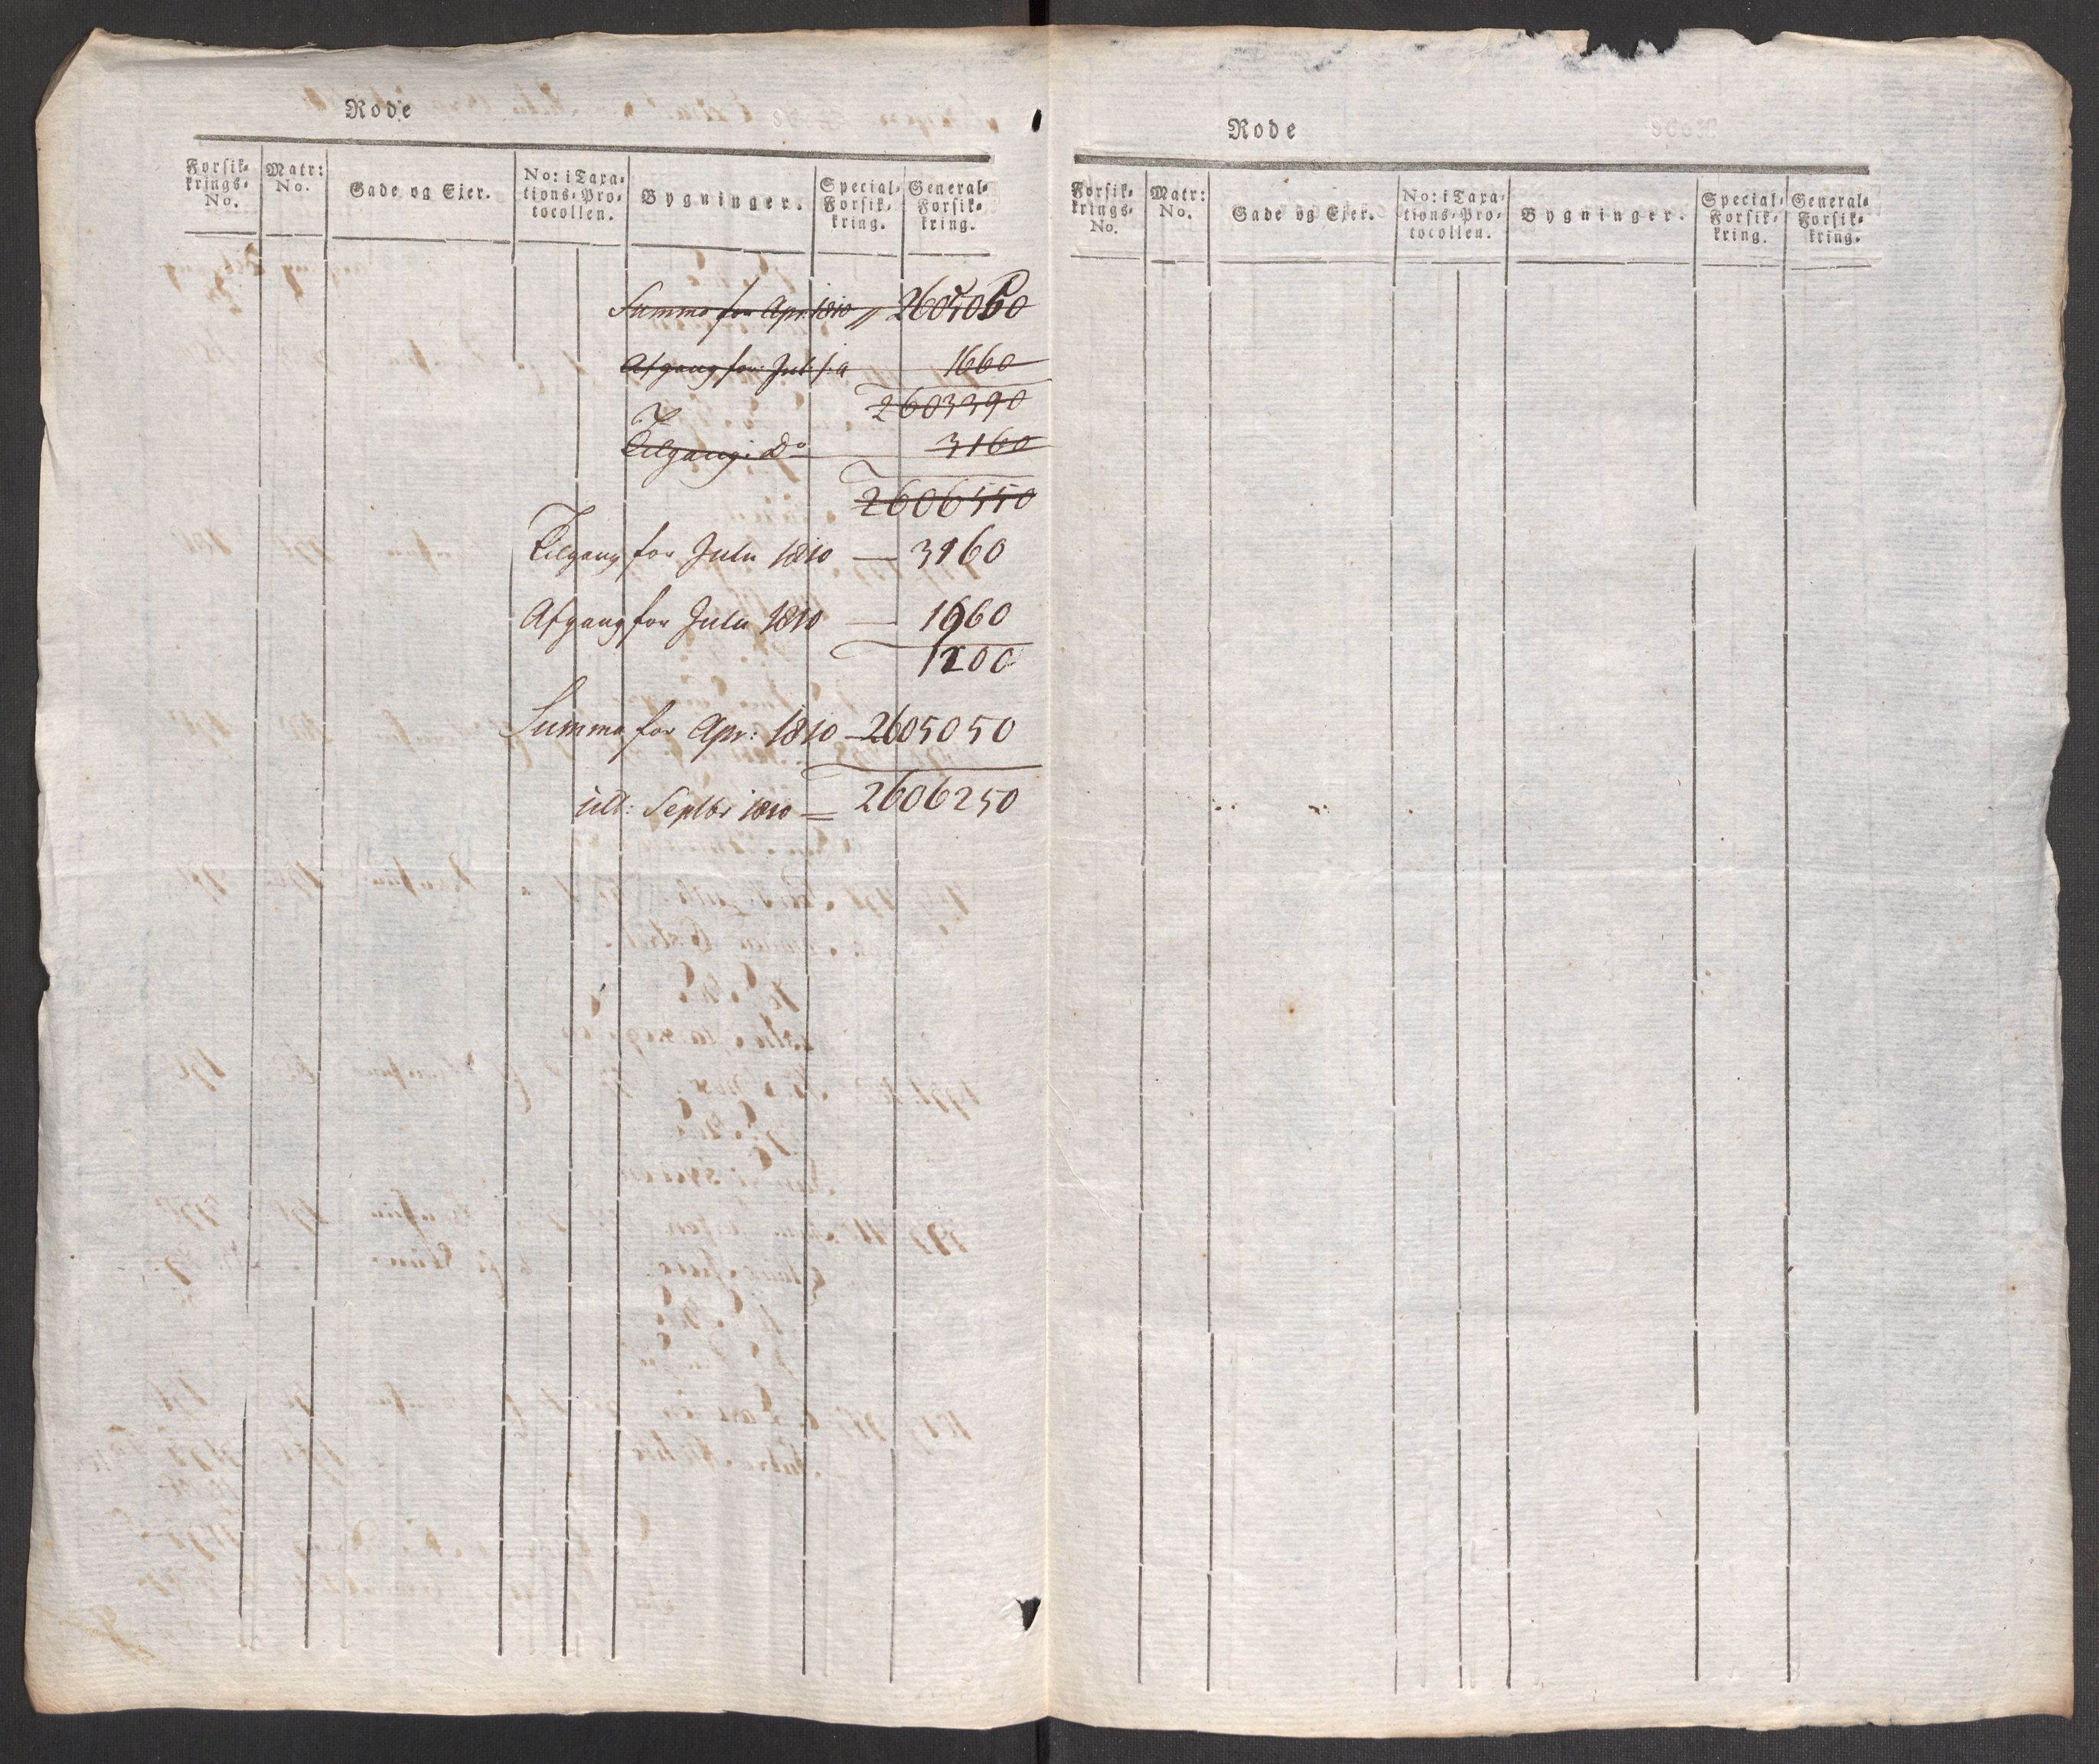 Rode
Forsik-
krings-
No.
Matr:
No.
Gade og Ejer.
No: i Taxa-
tions-Pro-
tocollen.
Bygninger.
Special-
Forsik-
kring.
General-
Forsik-
kring.
Summa for Apr: 1810 " 2605050
Afgang for Juli f: a 1660
2603390
Tilgang i Do 3160
2606550
Tilgang for Julii 1810 — 3160
Afgang for Julii 1810 — 1960
1200
Summa for Apr: 1810 — 2605050
ult: Septbr 1810 = 2606250
Rode
Forsik-
krings-
No.
Matr:
No.
Gade og Ejer.
No: i Taxa-
tions-Pro-
tocollen.
Bygninger.
Special-
Forsik-
kring.
General-
Forsik-
kring.